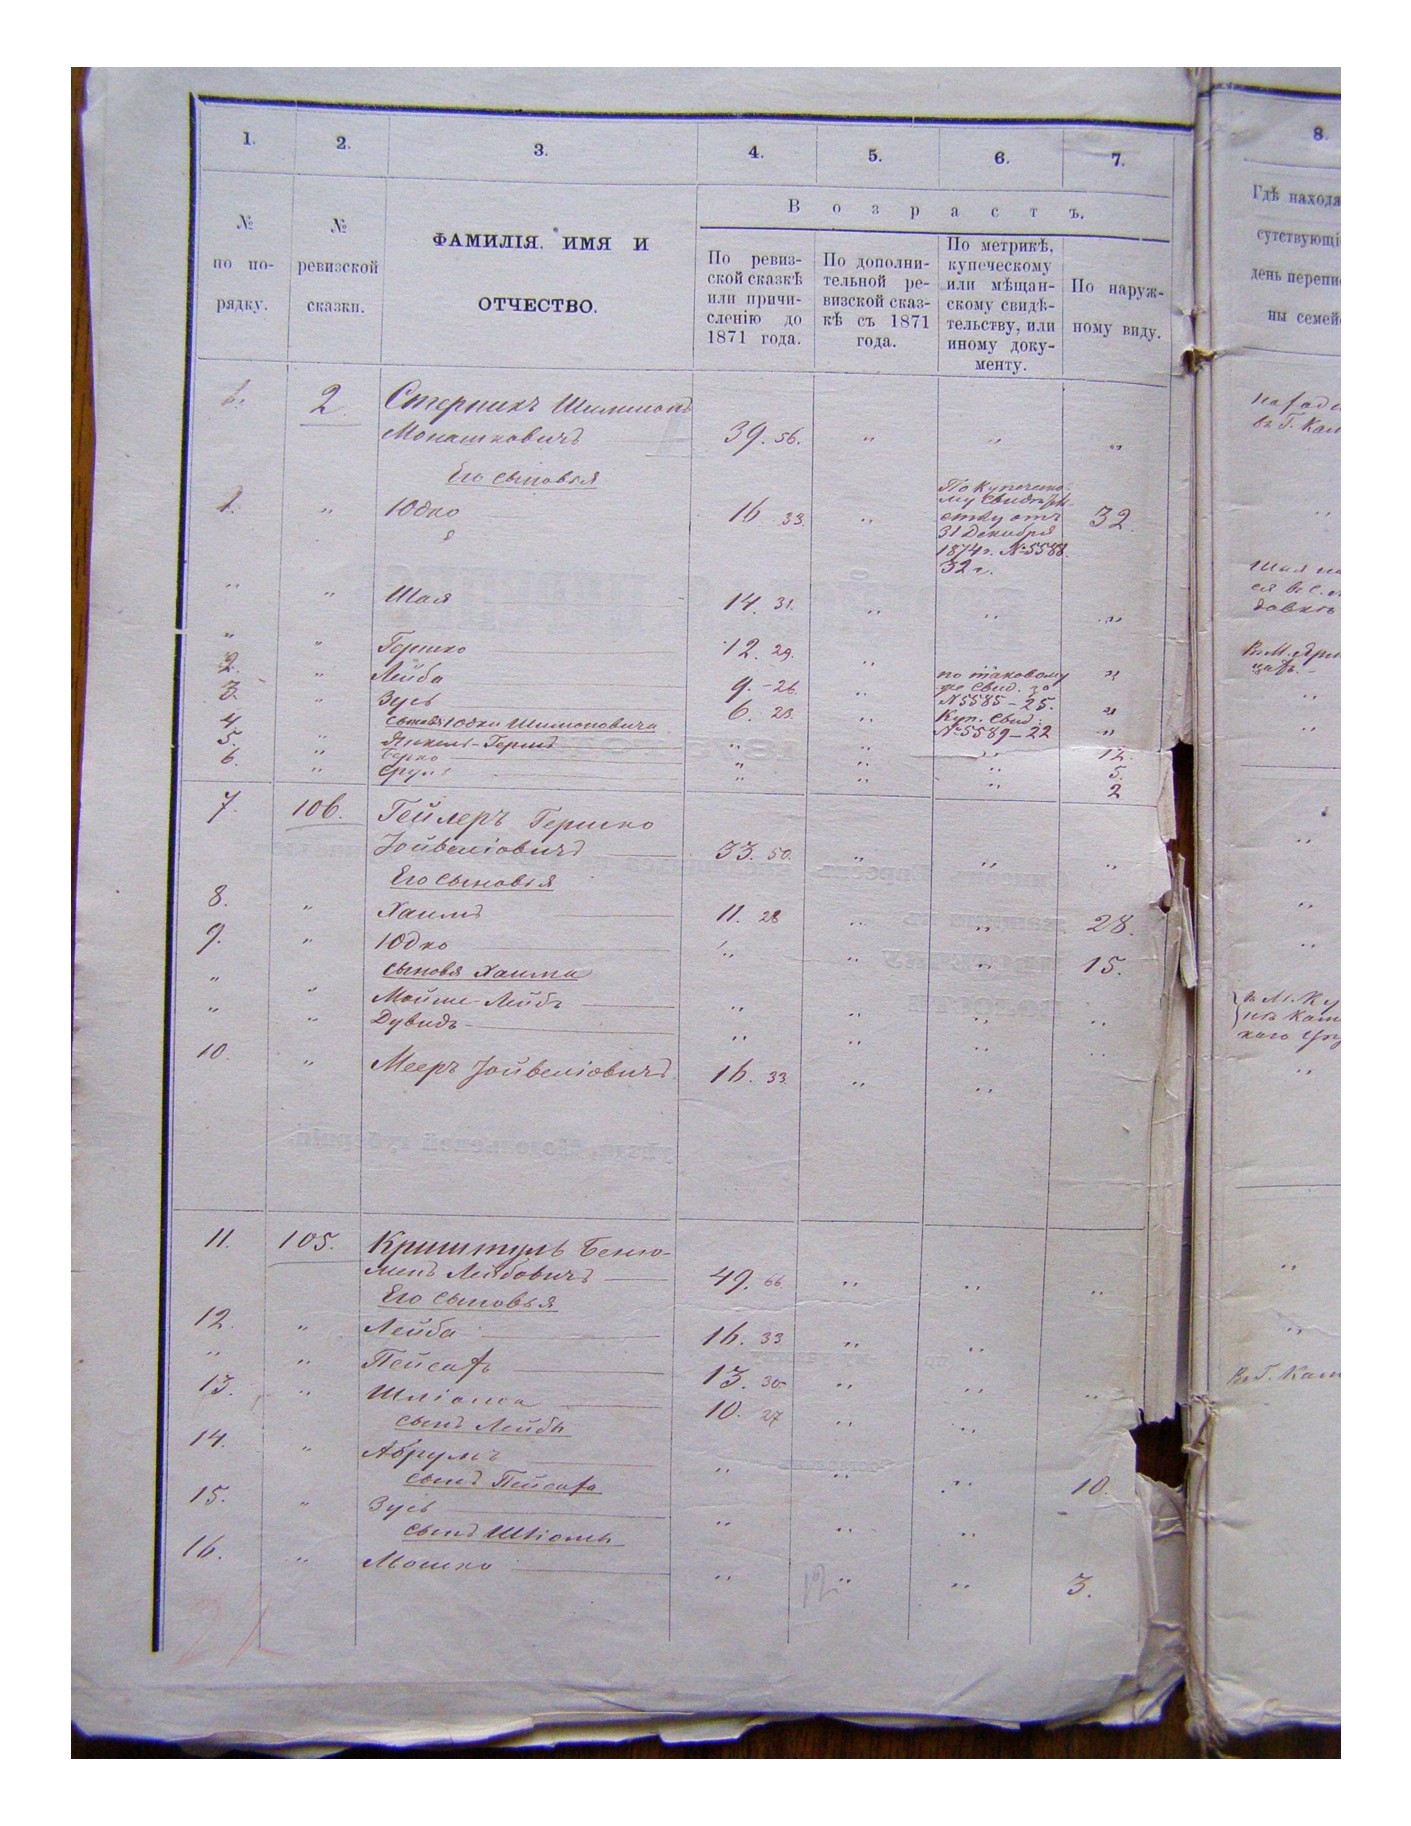 1. 2. 3. 4. 5. 6. 7. 8.
№ по по-рядку.
№ ревизской сказки.
ФАМИЛІЯ, ИМЯ И
ОТЧЕСТВО.
Возрастъ.
По ревиз-
ской сказкѣ
или причи-
сленію до
1871 года.
По дополни-
тельной ре-
визской сказ-
кѣ съ 1871
года.
По метрикѣ,
купеческому
или мѣщан-
скому свидѣ-
тельству, или
иному доку-
менту.
По наруж-
ному виду.
Гдѣ находя
сутствующі
день перепи
ны семей
1. 2. Стерникъ Шимшонъ
Монашковичъ 39. 56. " " "
Его сыновья
1. " Юдко 16 33. " 32
По купеческо-
му свидѣтель-
ству отъ
31 Декабря
1874 г. № 5588.
32 г.
" " Шая 14. 31. " " "
" " Гершко 12. 29. "
2. " Лейба 9. - 26. " по таковому "
же свид. за
№ 5585 - 25.
3. " Зусь 6. 23. " Куп. свид. "
№ 5589 - 22
сыновья Юдки Шимшоновича
4. " Янкель-Гершъ " " " 12.
5. " Берко " " " 5.
6. " Сруль " " " 2
7. 106. Гейлеръ Гершко
Іойвеліовичъ 33. 50. " " "
Его сыновья
8. " Хаимъ 11. 28 " " 28.
9. " Юдко " " " 15.
сыновя Хаима
" " Мойше-Лейбъ " " " "
" " Дувидъ " " " "
10. " Мееръ Іойвеліовичъ 16. 33. " "
11. 105. Криштуль Беню-
менъ Лейбовичъ 49. 66. " " "
Его сыновья
12. " Лейба 16. 33 " "
" " Пейсахъ 13. 30. " " "
13. " Шліома 10. 27 " "
сынъ Лейбы
14. " Абрумъ " " " 10.
сынъ Пейсаха
15. " Зусь " " "
сынъ Шліомы
16. " Мошко " " " 3.